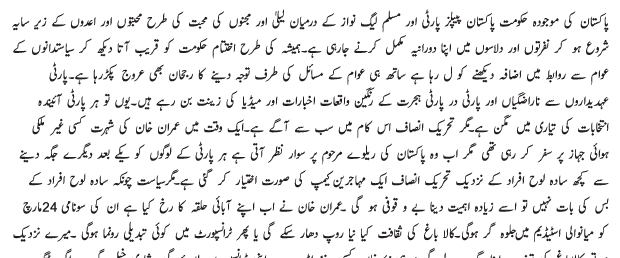 پاکستان کی موجودہ حکومت پاکستان پیپلز پارٹی اور مسلم لیگ نواز کے درمیان لیلٰی اور مجنوں کی محبت کی طرح محبتوں اور اعدوں کے زیر سایہ
شروع ہو کر نفرتوں اور دلاسوں میں اپنا دورانیہ مکمل کرنے جارہی ہے۔ہمیشہ کی طرح اختتام حکومت کو قریب آتا دیکھ کر سیاستدانوں کے
عوام سے روابط میں اضافہ دیکھنے کو ل رہا ہے ساتھ ہی عوام کے مسائل کی طرف توجہ دینے کا رجحان بھی عروج پکڑرہا ہے۔پارٹی
عہدیداروں سے ناراضگیاں اور پارٹی در پارٹی ہجرت کے رنگین واقعات اخبارات اور میڈیا کی زینت بن رہے ہیں۔یوں تو ہر پارٹی آئیندہ
انتخابات کی تیاری میں مگن ہے۔مگر تحریک انصاف اس کام میں سب سے آگے ہے۔ایک وقت میں عمران خان کی شہرت کسی غیر ملکی
ہوائی جہاز پر سفر کر رہی تھی مگر اب وہ پاکستان کی ریلوے مرحوم پر سوار نظر آتی ہے ہر پارٹی کے لوگوں کو یکے بعد دیگرے جگہ دینے
سے کچھ سادہ لوح افراد کے نزدیک تحریک انصاف ایک مہاجرین کیمپ کی صورت اختیار کر گئی ہے۔مگرسیاست چونکہ سادہ لوح افراد کے
بس کی بات نہیں تو اسے زیادہ اہمیت دینا بے و قوفی ہو گی ۔عمران خان نے اب اپنے آبائی حلقہ کا رخ کیا ہے ان کی سونامی 24مارچ
کو میانوالی اسٹیڈیم میں جلوہ گر ہوگی۔کالا باغ کی ثقافت کیا نیا روپ دھار سکے گی یا پھر ٹرانسپورٹ میں کوئی تبدیلی رونما ہوگی ۔میرے نزدیک